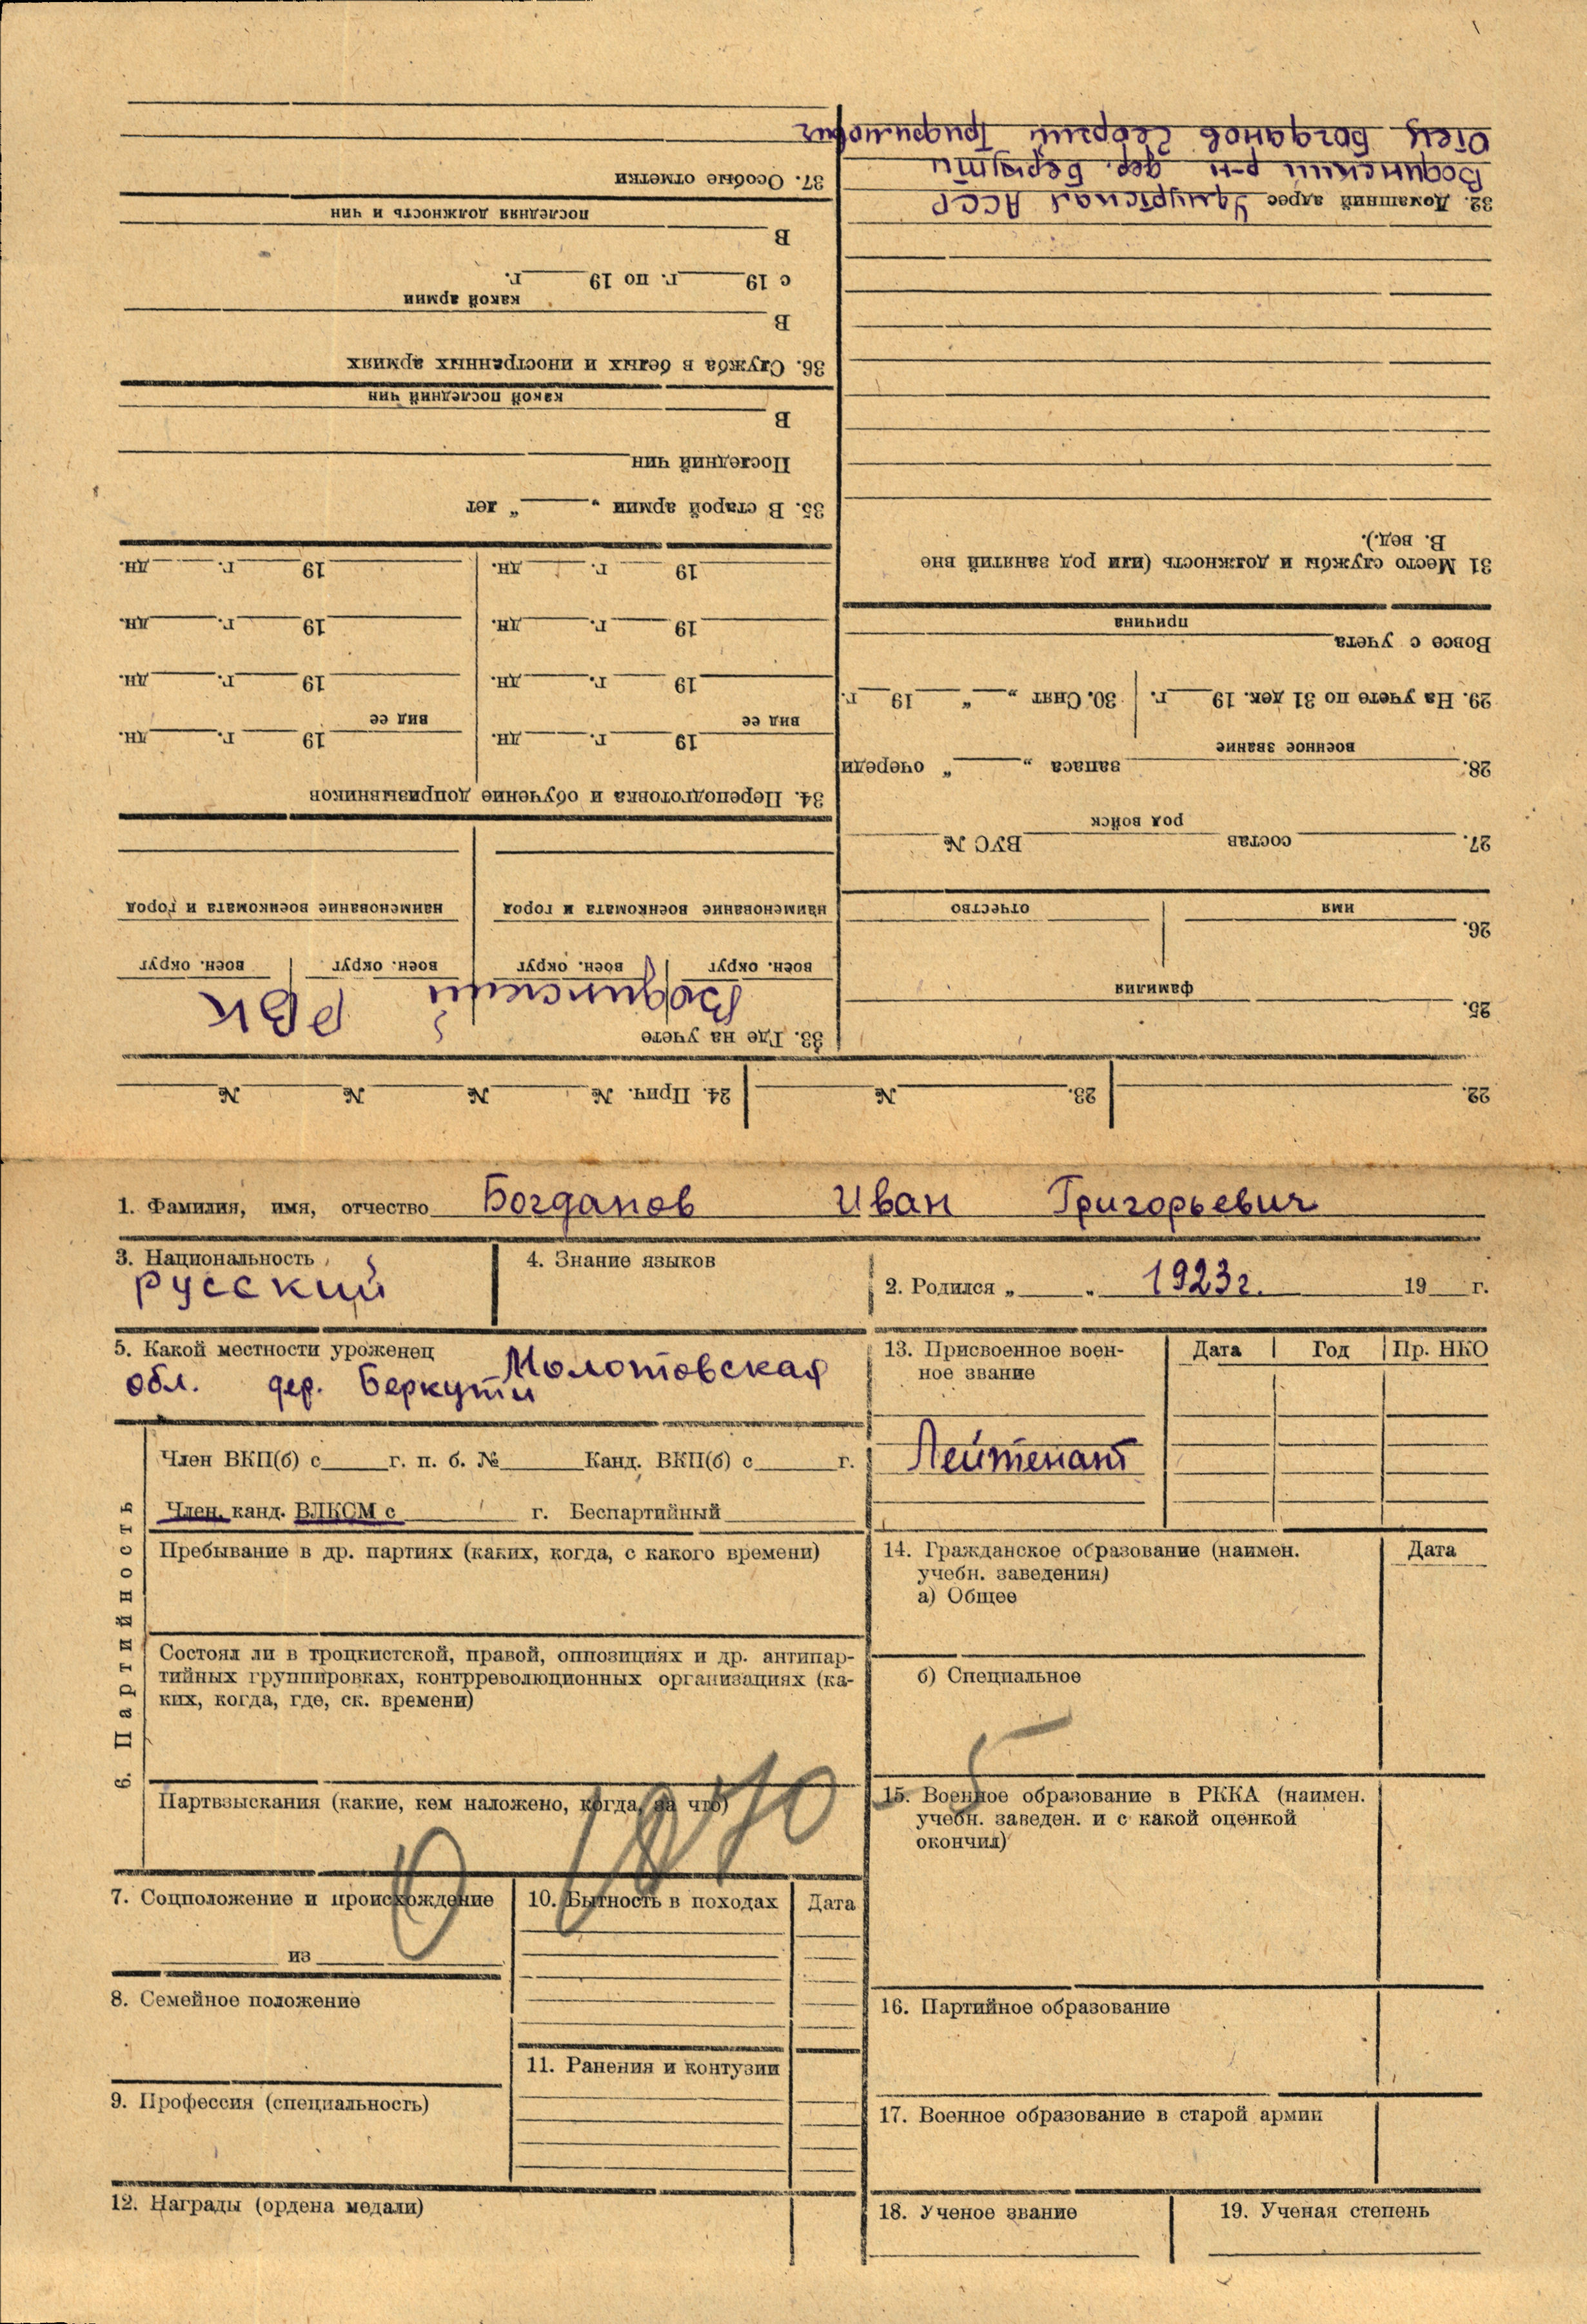 1. Фамилия, имя, отчество Богданов Иван Григорьевич
3. Национальность
русский
4. Знание языков
2. Родился „ “ 1923г. 19 г.
5. Какой местности уроженец Молотовская
обл. дер. Беркути
13. Присвоенное воен-
ное звание
Дата Год Пр. НКО
Лейтенант
6. Партийность
Член ВКП(б) с г. п. б. № Канд. ВКП(б) с г.
Член, канд. ВЛКСМ с г. Беспартийный
Пребывание в др. партиях (каких, когда, с какого времени)
Состоял ли в троцкистской, правой, оппозициях и др. антипар-
тийных группировках, контрреволюционных организациях (ка-
ких, когда, где, ск. времени)
Партвзыскания (какие, кем наложено, когда, за что)
14. Гражданское образование (наимен.
учебн. заведения)
а) Общее
Дата
б) Специальное
15. Военное образование в РККА (наимен.
учебн. заведен. и с какой оценкой
окончил)
7. Соцположение и происхождение
из
10. Бытность в походах Дата
8. Семейное положение
11. Ранения и контузии
9. Профессия (специальность)
12. Награды (ордена медали)
16. Партийное образование
17. Военное образование в старой армии
18. Ученое звание
19. Ученая степень
22. 23. № 24. Прич. № № № №
25.
фамилия
26.
имя отчество
27. состав род войск ВУС №
28. военное звание запаса „ “ очереди
29. На учете по 31 дек. 19 г. 30. Снят „ “ 19 г.
Вовсе с учета
причина
31 Место службы и должность (или род занятий вне
В. вед.)
32. Домашний адрес Удмуртская АССР
Воткинский р-н дер. Беркути
Отец Богданов Григорий
33. Где на учете
Воткинский РВК
воен. округ воен. округ воен. округ воен. округ
наименование военкомата и города наименование военкомата и города
34. Переподготовка и обучение допризывников
вид сс 19 г. дн. вид сс 19 г. дн.
19 г. дн. 19 г. дн.
19 г. дн. 19 г. дн.
19 г. дн. 19 г. дн.
35. В старой армии „ “ лет
Последний чин
В
какой последний чин
36. Служба в белых и иностранных армиях
В
какой армии
с 19 г. по 19 г.
В
последняя должность и чин
37. Особые отметки